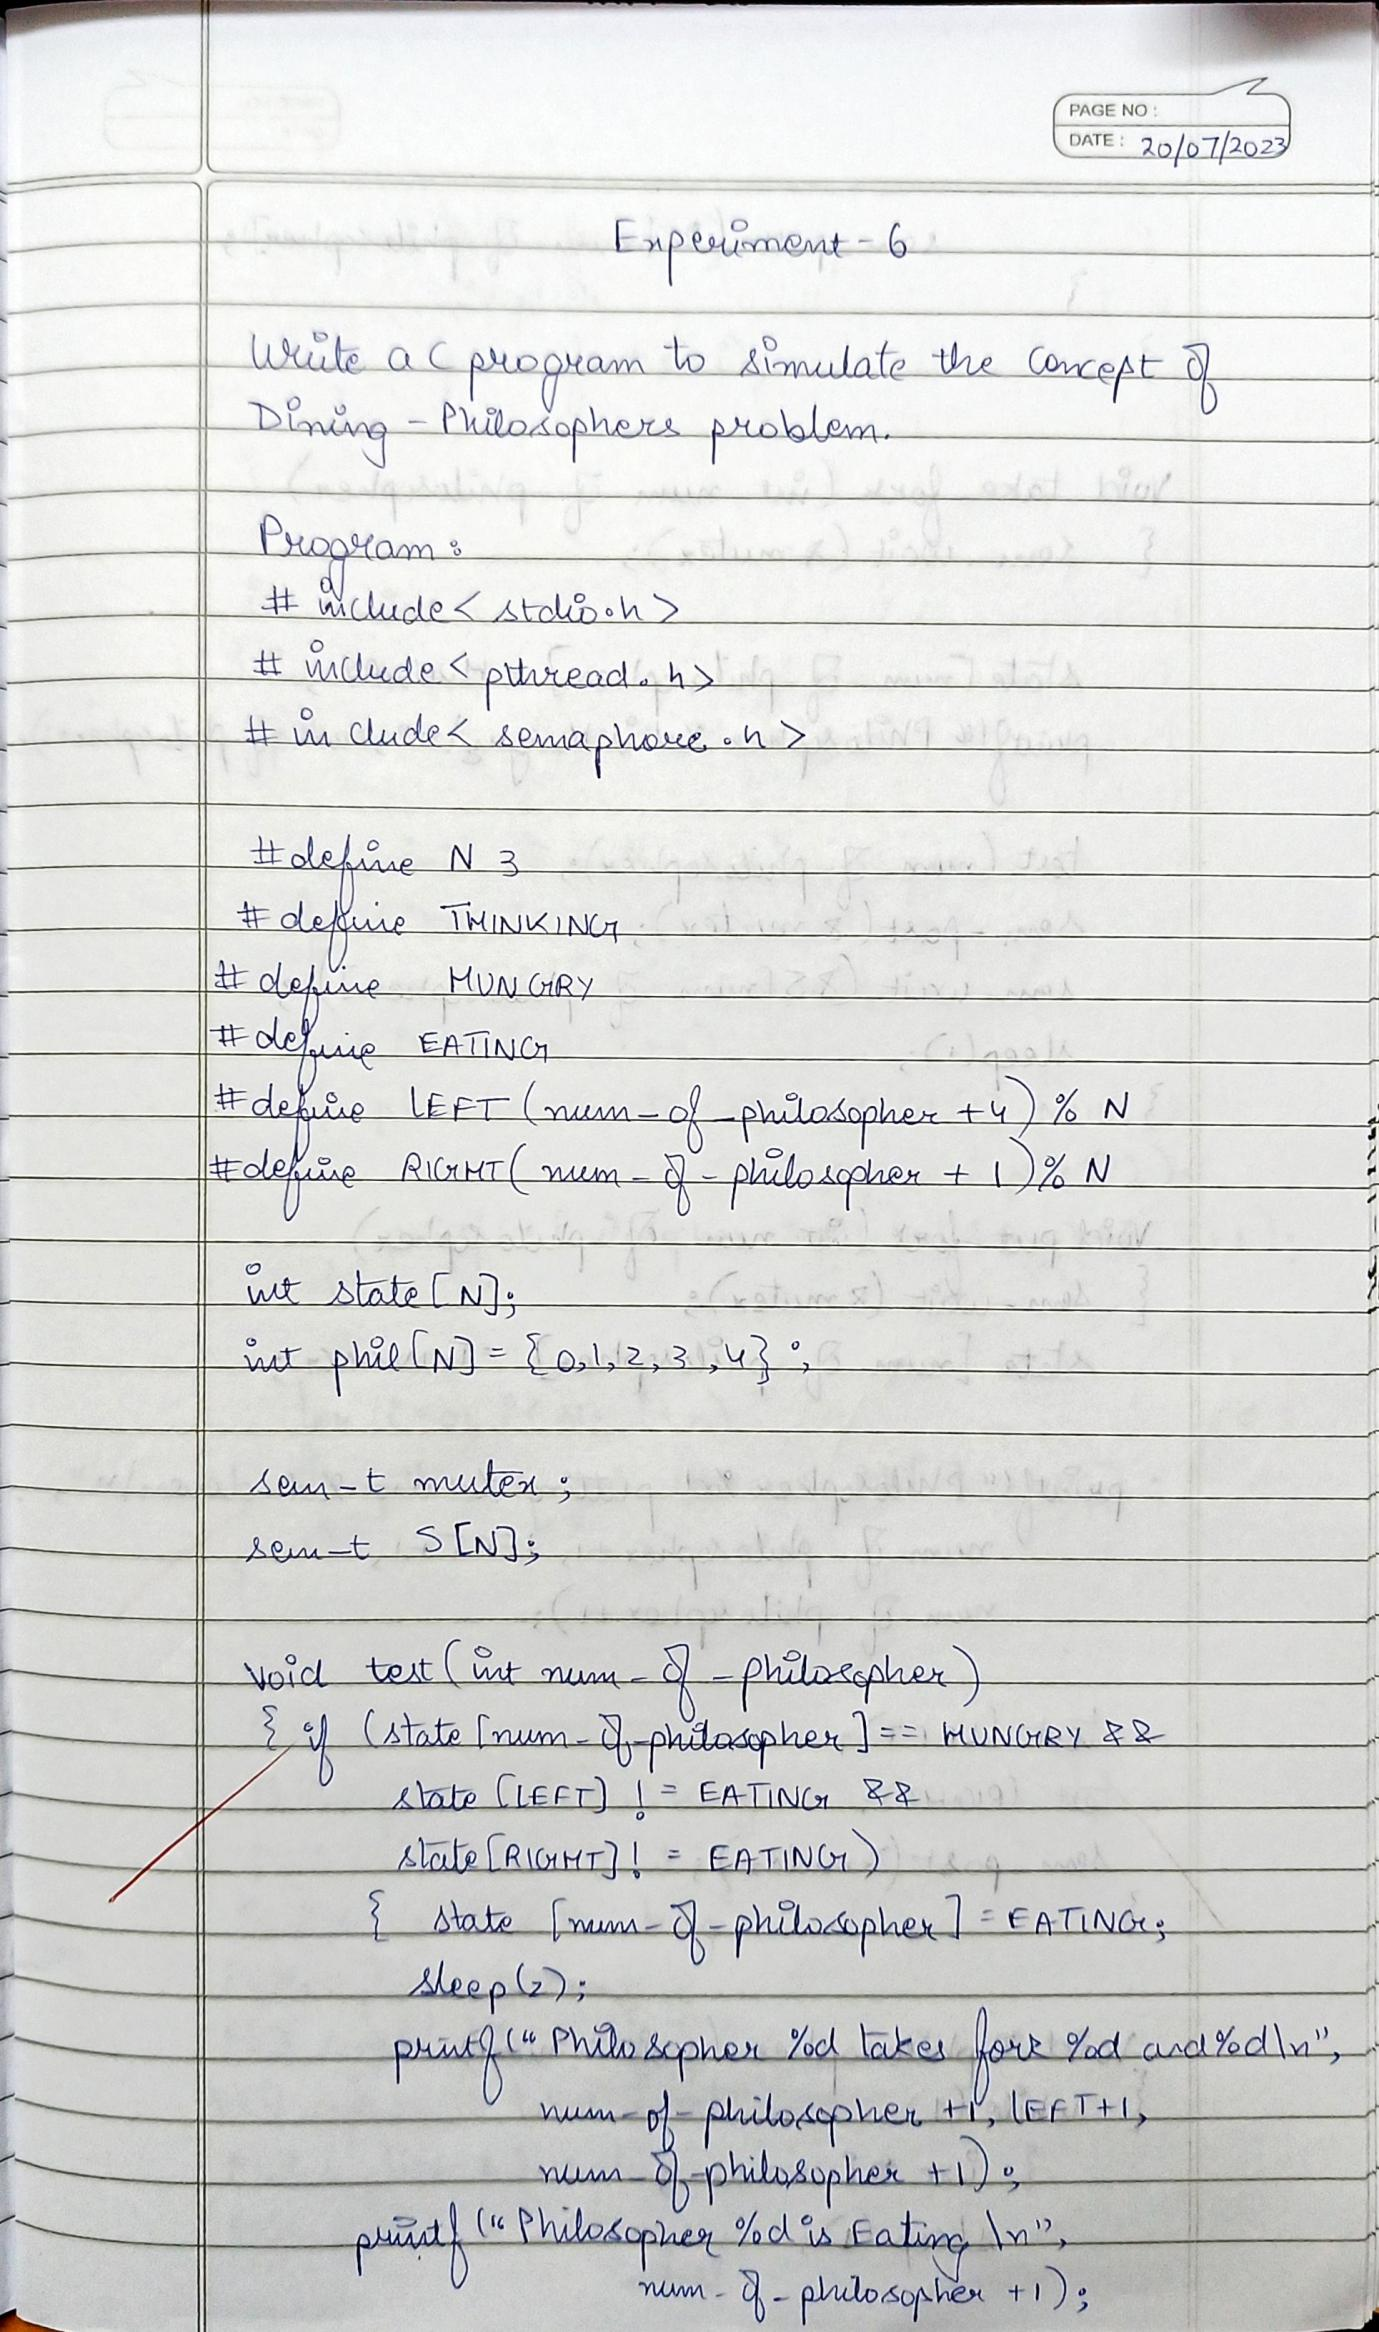 PAGE NO :
DATE : 20/07/2023
Experiment - 6
Write a C program to simulate the concept of
Dining - Philosophers problem.
Program:
# include < stdio.h >
# include < pthread.h >
# in clude < semaphore.h >
#define N 3
# define THINKING
# define HUNGRY
# define EATING
# define LEFT (num-of-philosopher +4) % N
#define RIGHT (num-of-philosopher + 1) % N
int state [N];
int phil [N] = {0,1,2,3,4};
sem-t mutex;
sem-t S[N];
void test (int num-of-philosopher)
{ if (state [num-of-philosopher] == HUNGRY &&
state [LEFT] != EATING &&
state [RIGHT] != EATING)
{ state [num-of-philosopher] = EATING;
sleep(2);
printf (" Philosopher %d takes fork %d and %d\n",
num-of-philosopher +1, LEFT+1,
num-of-philosopher +1);
printf (" Philosopher %d is Eating \n",
num-of-philosopher +1);